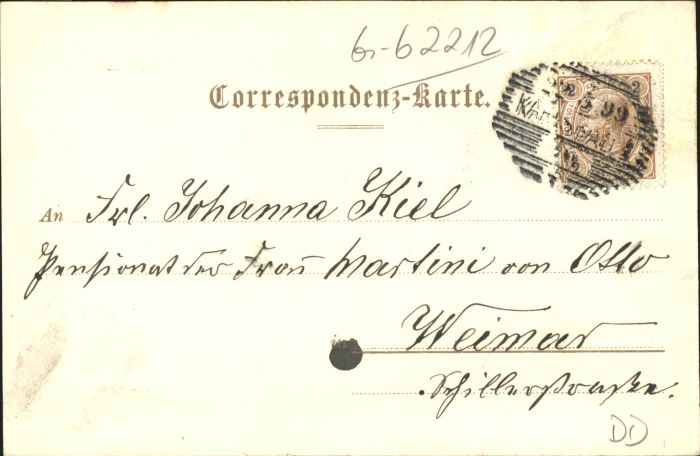 6-62212
Correspondenz-Karte.
2
99
An Frl. Johanna Kiel
Pensionat der Frau Martini von Otto
in Weimar
Schillerstraße.
DD